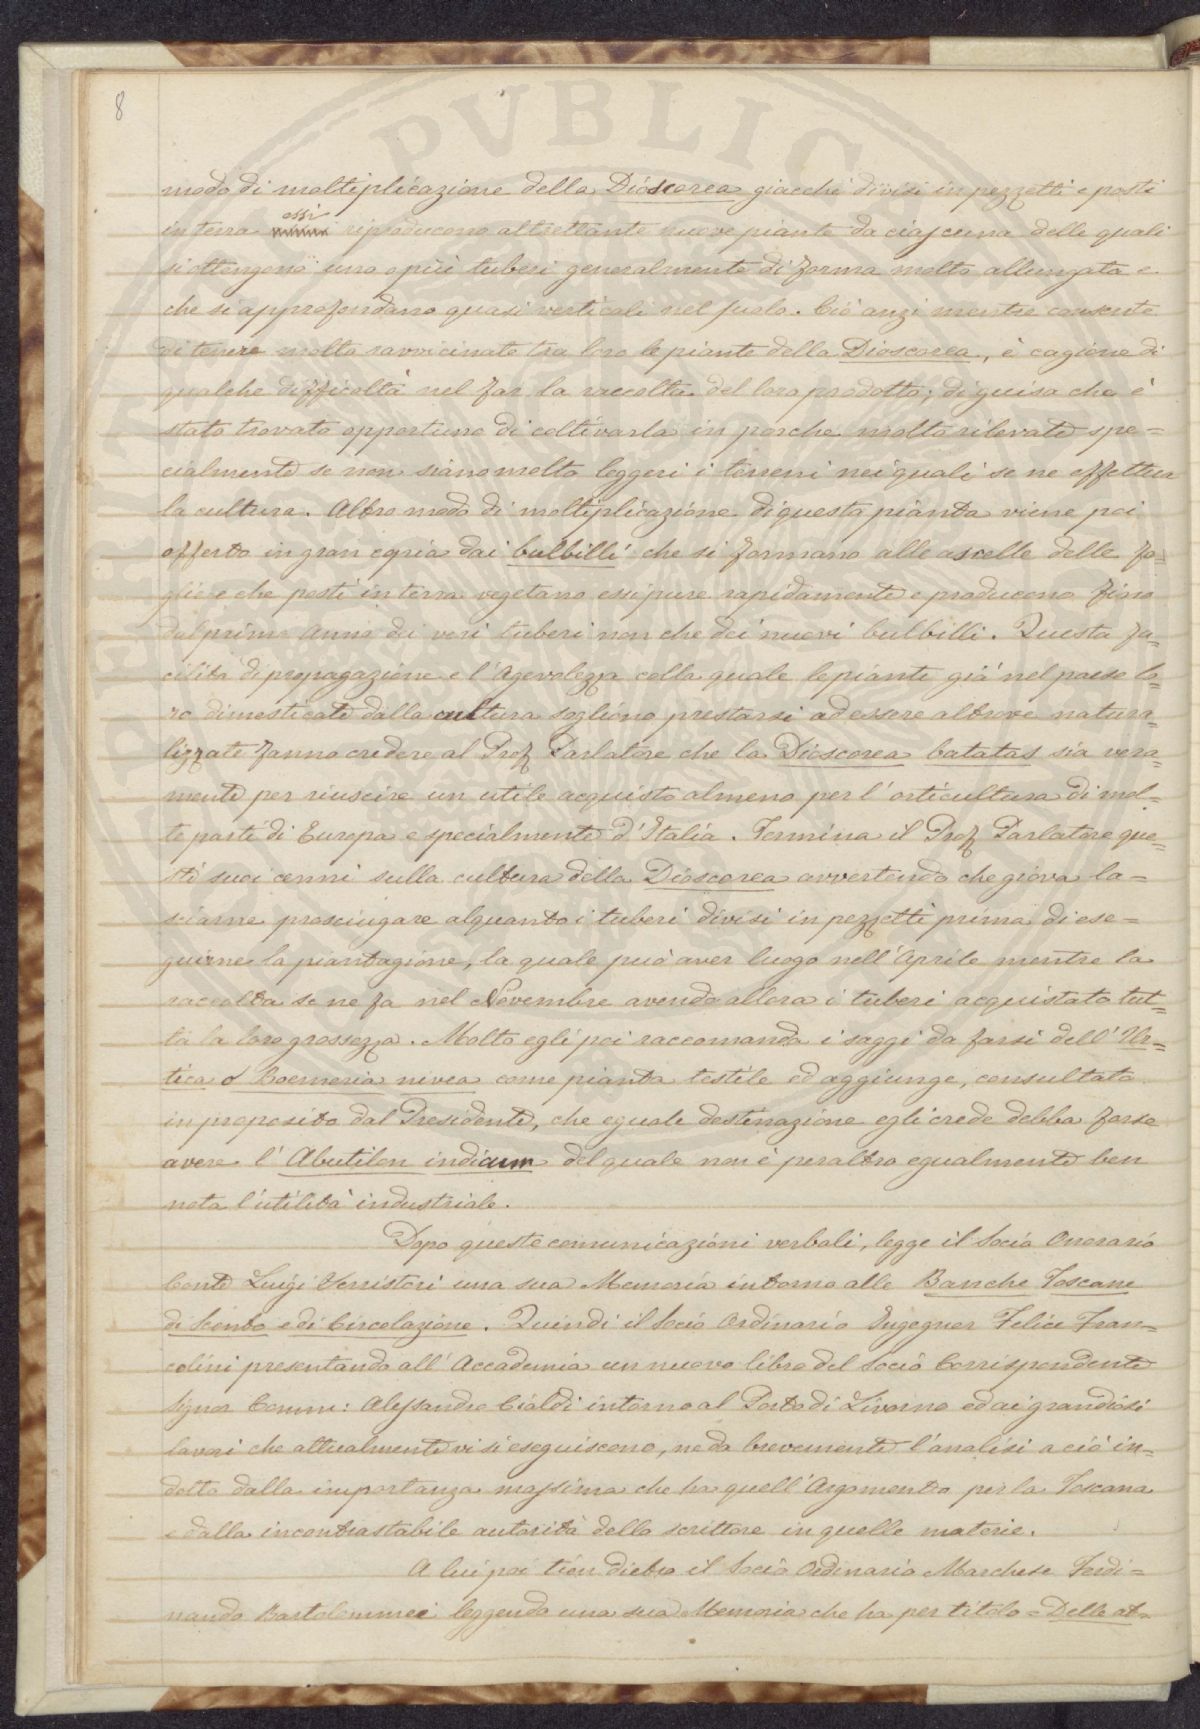 8
modo di moltiplicazione della Dioscorea giacchè divisi in pezzetti e posti
in terra essi riproducono altrettante nuove piante da ciascuna delle quali
si ottengono uno o più tuberi generalmente di forma molto allungata e
che si approfondano quasi verticali nel suolo. Ciò anzi mentre consente
di tenere molto ravvicinate tra loro le piante della Dioscorea, è cagione di
qualche difficoltà nel far la raccolta del loro prodotto; di guisa che è
stato trovato opportuno di coltivarla in porche molto rilevate spe=
cialmente se non siano molto leggeri i terreni nei quali se ne effettua
la cultura. Altro modo di moltiplicazione di questa pianta viene poi
offerto in gran copia dai bulbilli che si formano alle ascelle delle fo=
glie e che posti in terra vegetano essi pure rapidamente e producono fino
dal primo anno dei veri tuberi non che dei nuovi bulbilli. Questa fa=
cilità di propagazione e l'agevolezza colla quale le piante già nel paese lo=
ro dimesticate dalla cultura sogliono prestarsi ad essere altrove natura=
lizzate fanno credere al Prof Parlatore che la Dioscorea batatas sia vera=
mente per riuscire un utile acquisto almeno per l'orticultura di mol=
te parti di Europa e specialmente d'Italia. Termina il Prof Parlatore que=
sti suoi cenni sulla cultura della Dioscorea avvertendo che giova la=
sciarne prosciugare alquanto i tuberi divisi in pezzetti prima di ese=
guirne la piantagione, la quale può aver luogo nell'Aprile mentre la
raccolta se ne fa nel Novembre avendo allora i tuberi acquistato tut=
ta la loro grossezza. Molto egli poi raccomanda i saggi da farsi dell'Ur=
tica o Boemeria nivea come pianta testile ed aggiunge, consultato
in proposito dal Presidente, che eguale destinazione egli crede debba forse
avere l'Abutilon indicum del quale non è peraltro egualmente ben
nota l'utilità industriale.
Dopo queste comunicazioni verbali, legge il Socio Onorario
Conte Luigi Serristori una sua Memoria intorno alle Banche Toscane
di Sconto e di Circolazione. Quindi il Socio Ordinario Ingegner Felice Fran=
colini presentando all'Accademia un nuovo libro del Socio Corrispondente
Signor Comm: Alessandro Cialdi intorno al Porto di Livorno ed ai grandiosi
lavori che attualmente vi si eseguiscono, ne da brevemente l'analisi a ciò in=
dotto dalla importanza massima che ha quell'Argomento per la Toscana
e dalla incontrastabile autorità dello scrittore in quelle materie.
A lui poi tien dietro il Socio Ordinario Marchese Ferdi=
nando Bartolommei leggendo una sua Memoria che ha per titolo = Delle at=
PVBLICA